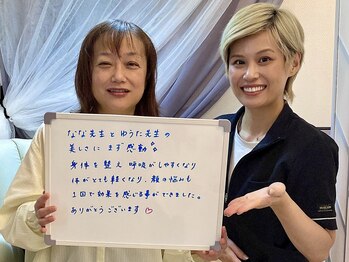 なな先生とゆうた先生の
美しさにまず感動
身体を整え呼吸がしやすくなり
体がとても軽くなり、顔の悩みも
1回で効果を感じる事ができました。
ありがとうございます♡